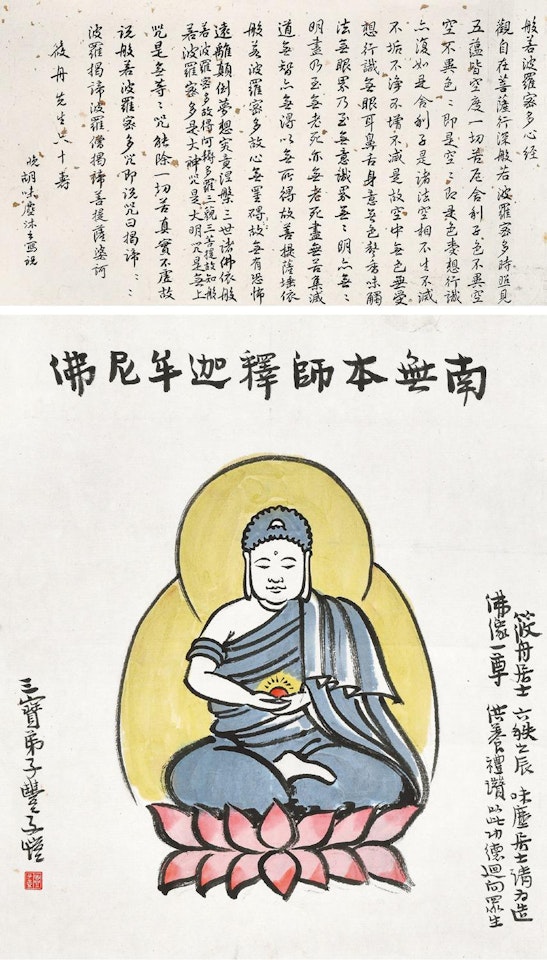 般若波羅密多心經
觀自在菩薩行深般若波羅密多時照見
五蘊皆空度一切苦厄舍利子色不異空
空不異色：即是空：即是色受想行識
亦復如是舍利子是諸法空相不生不滅
不垢不淨不增不減是故空中無色無受
想行識無眼耳鼻舌身意無色聲香味觸
法無眼界乃至無意識界無：明亦無：
明盡乃至無老死亦無老死盡無苦集滅
道無智亦無得以無所得故菩提薩埵依
般若波羅密多故心無罣碍故無有恐怖
遠離顛倒夢想究竟涅槃三世諸佛依般
若波羅密多故得阿耨多羅三藐三菩提故知般
若波羅密多是大神咒是大明咒是無上
咒是無等：咒能除一切苦真實不虛故
說般若波羅密多咒即說咒曰揭諦：：
波羅揭諦波羅僧揭諦菩提薩婆訶
筱丹先生六十壽
晚胡味塵沐手敬祝
南無本師釋迦牟尼佛
筱丹居士六秩之辰味塵居士請為造
佛像一尊供養容禮讚以此功德迴向眾生
三寶弟子豐子愷